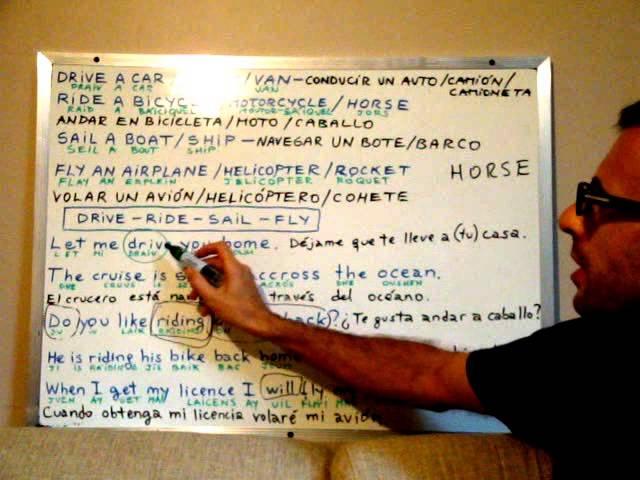 DRIVE A CAR /VAN-CONDUCIR UN AUTO/CAMIÓN/
DRAIV A CAR VAN CAMIONETA
RIDE A BICYCL MOTORCYCLE/HORSE
RAID A BAICIQUEL JORS
ANDAR EN BICICLETA/MOTO/CABALLO
SAIL A BOAT/SHIP-NAVEGAR UN BOTE/BARCO
SEIL A BOUT SHIP
FLY AN AIRPLANE/HELICOPTER/ROCKET HORSE
FLAY AN ERPLEIN JELICOPTER ROQUET
VOLAR UN AVIÓN/HELICÓPTERO/COHETE
DRIVE-RIDE-SAIL-FLY
Let me driv you home. Déjame que te lleve a (tu) casa.
LET MI DRAIV
The cruise is accross the ocean.
DHE CRUUS IS ACROS DHE OUSHEN
El crucero está nav través del océano.
Do you like riding back)? ¿Te gusta andar a caballo?
LAIK RAIDING
He is riding his bike back home
JI IS RAIDING JIS BAIK BAC
When I get my licence I will fly
JUEN AY GET MAY LAICENS AY UIL FLAY
Cuando obtenga mi licencia volaré mi avió